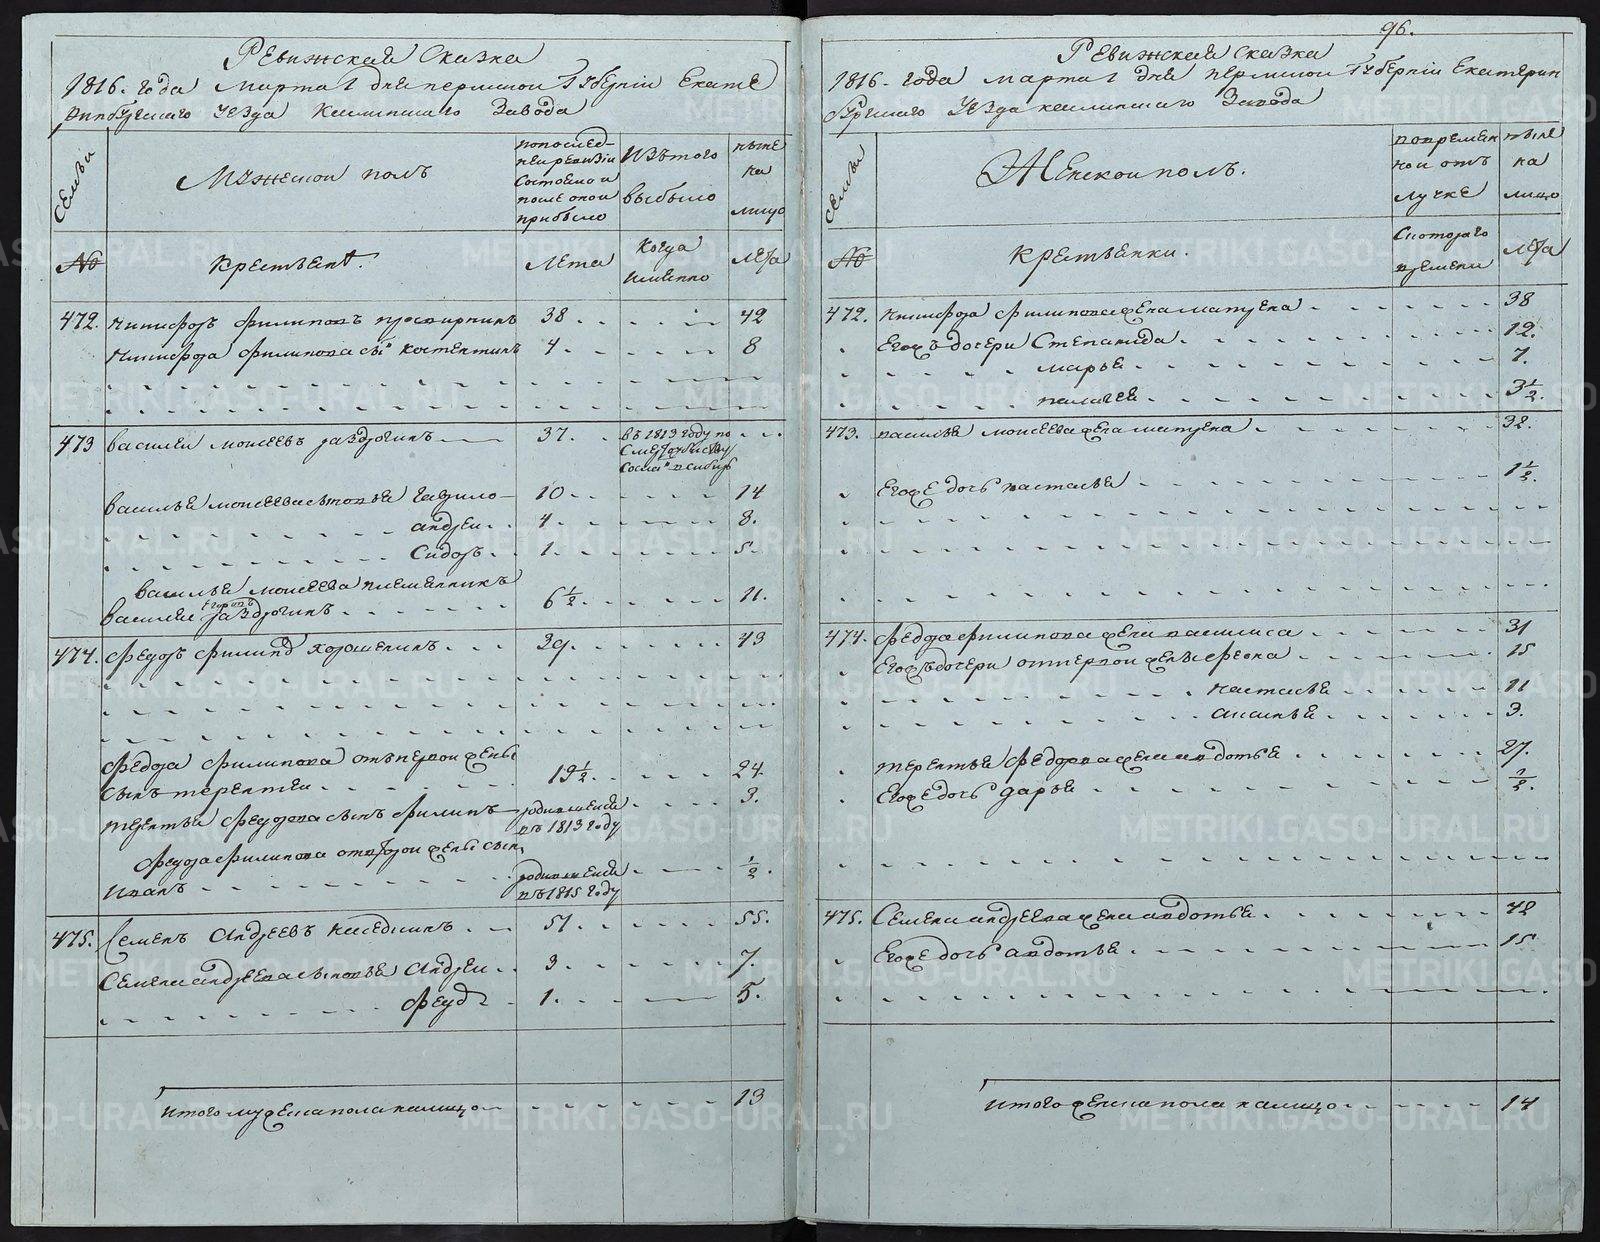 Ревижская Сказка
1816. года марта 1 дня пермской Губернiи Екате
ринбургскаго Уезда Каслинскаго Завода
Семьи
Мужеской полъ
попослед-
неи ревизiи
Состояло и
после онои
прибыло
Изътого
выбыло
ныне
на
лицо
№
крестьяня.
Лета
Когда
имянно
лета
472.
никифоръ филиповъ 38 42
никифора филипова сынъ костентинъ 4 8
473 василеи моисеевъ 37. въ 1813 году по
василья моисеева сыновья гаврило 10 14
андреи 4. 8.
Сидоръ 1. 5.
василья моисеева племянникъ
василеи 6 1/2 11.
474. федоръ филипов 39. 43
федора филипова отъ первои жены
сынъ терентеи 19 1/2. 24.
терентья федорова сынъ филипъ родился 3.
въ 1813 году
федора филипова от второи жены сынъ
Иванъ родился 1/2.
въ 1815 году
475. Семенъ Андреевъ 51. 55.
Семена андреева сыновья Андреи 3. 7.
федоръ 1. 5.
итого мужеска пола налицо 13
96.
Ревижская Сказка
1816. года марта 1 дня пермской Губернiи Екатерин
бургскаго Уезда каслинскаго Завода
Семьи
Женской полъ.
повремен
ной отъ
лучке
ныне
на
лицо
№
крестьянки.
Скоторого
времени
лета
472. никифора филипова жена матрена 38
Егожъ дочери Степанида 12.
марья 7.
пелагея 3 1/2.
473. василья моисеева жена матрена 32.
Егоже дочь настасья 1 1/2.
474. федора филипова жена василиса 31
Егожъ дочери от первои жены 15
настасья 11
3.
терентья федорова жена авдотья 27.
Егоже дочь дарья 1/2.
475. Семена андреева жена авдотья 42
Егоже дочь авдотья 15.
итого женска пола налицо 14
METRIKI.GASO-URAL.RU